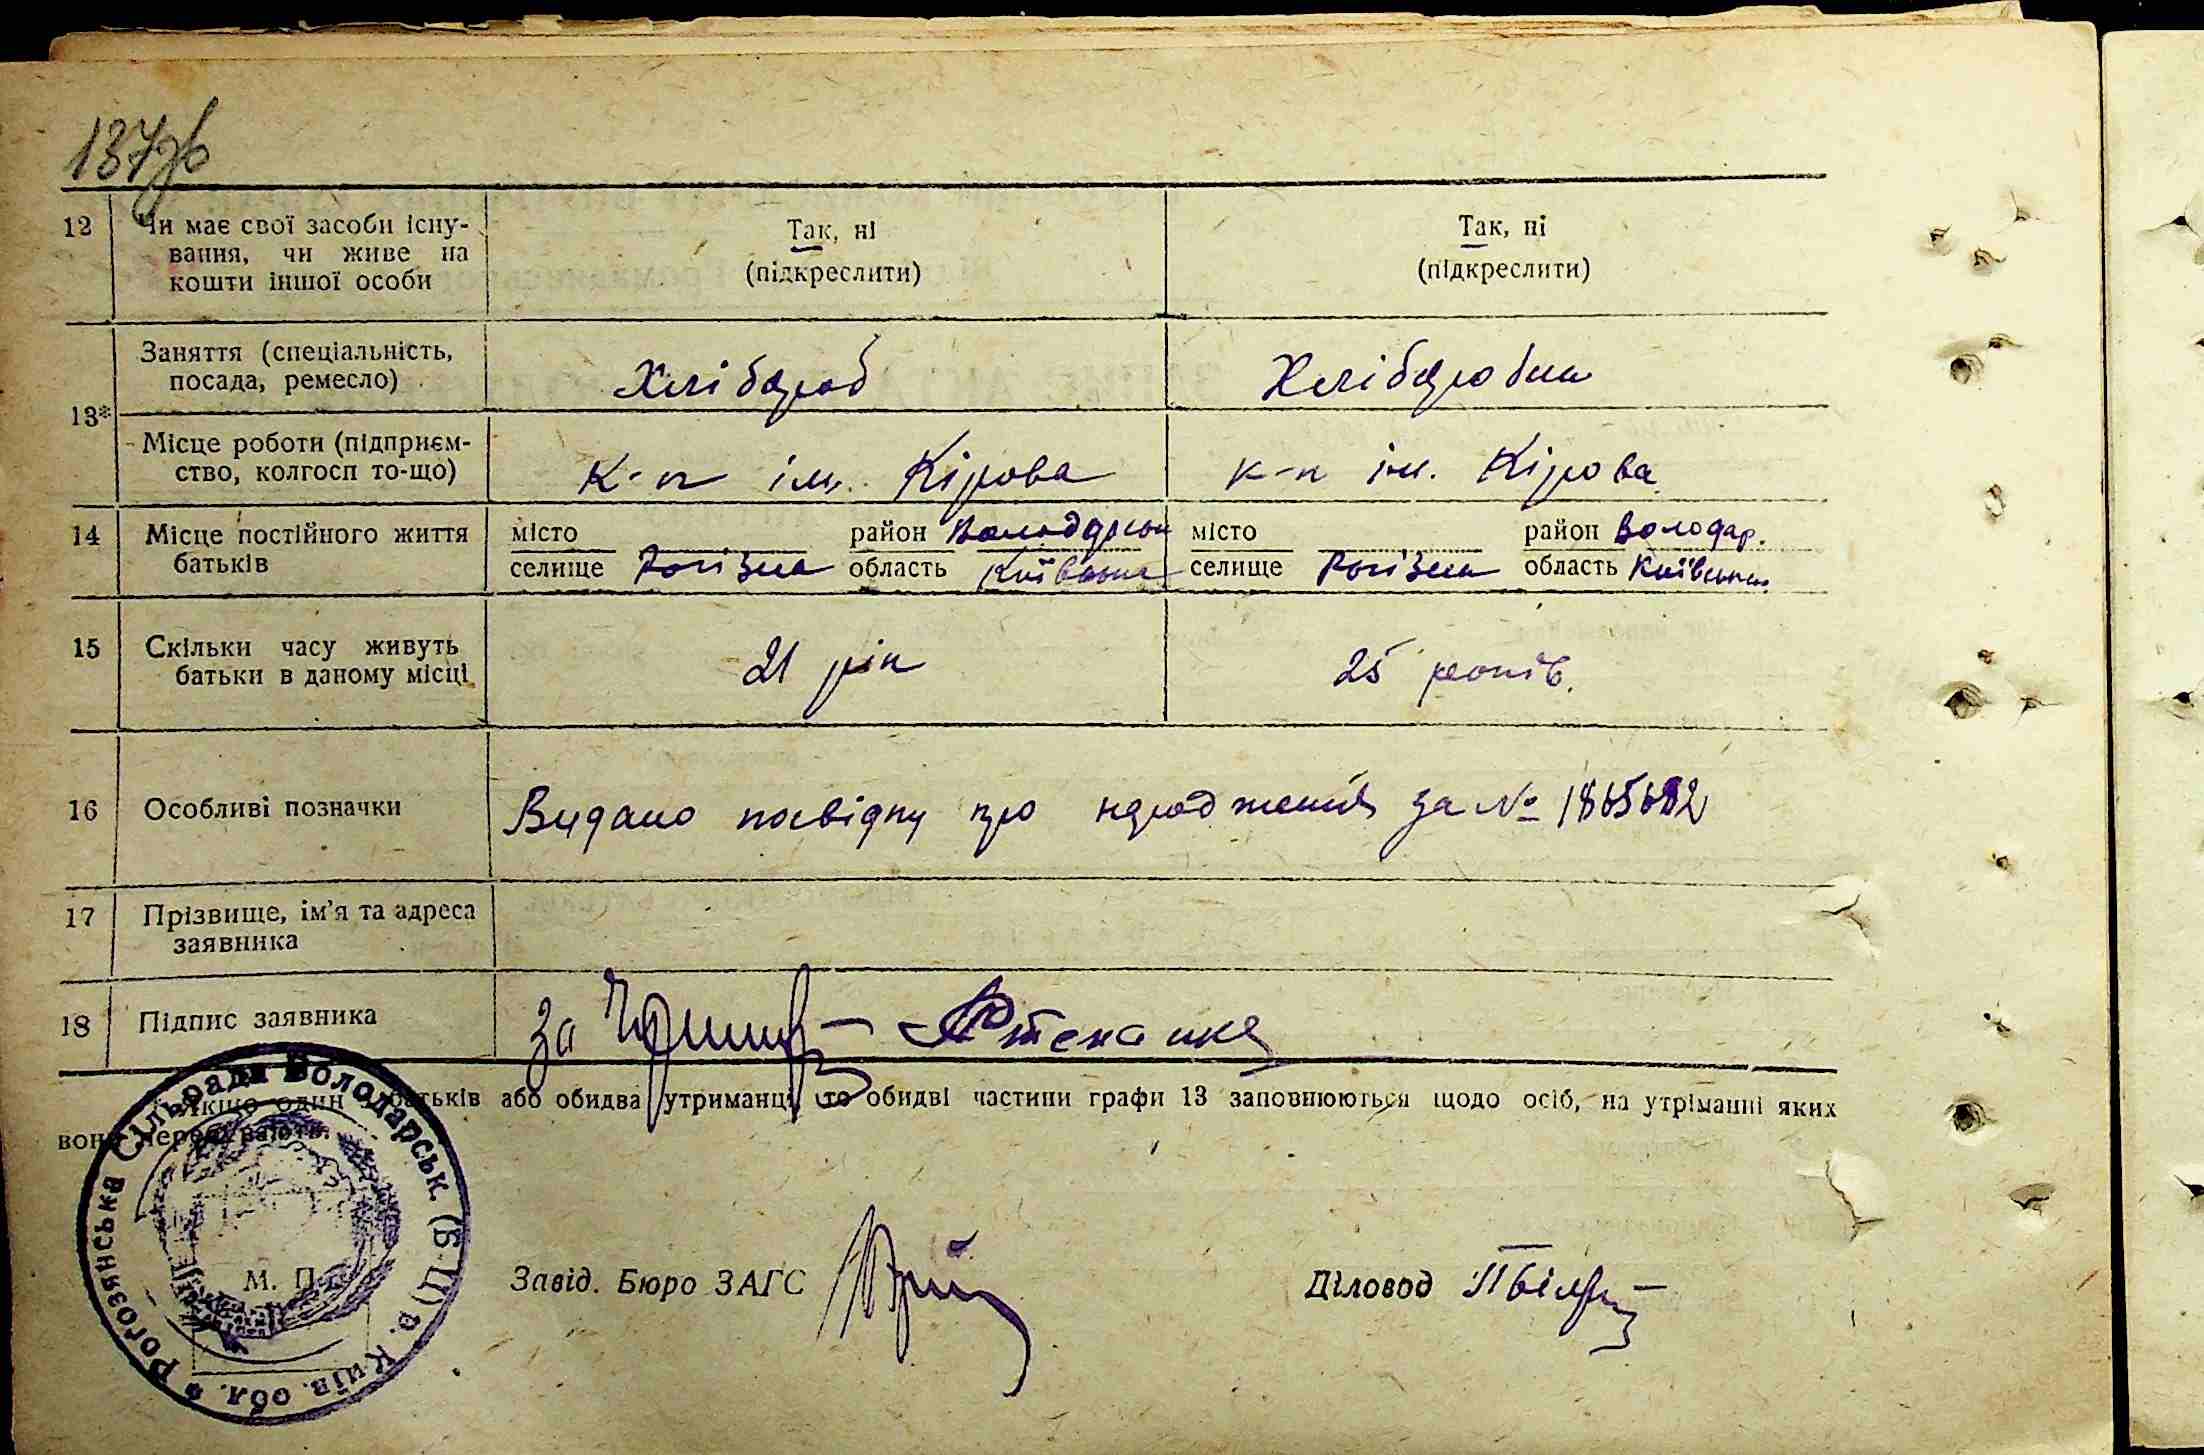 137зв
12 Чи має свої засоби існу-
вання, чи живе на
кошти іншої особи
Так, ні
(підкреслити)
Так, ні
(підкреслити)
13*
Заняття (спеціальність,
посада, ремесло)
Хлібороб
Хліборобка
Місце роботи (підприєм-
ство, колгосп то-що)
к-п ім. Кірова
к-п ім. Кірова
14 Місце постійного життя
батьків
місто район Володарськ
селище Рогізна область Київська
місто район Володар.
селище Рогізна область Київська
15 Скільки часу живуть
батьки в даному місці
21 рік
25 років.
16 Особливі позначки
Видано посвідку про народження за № 1865682
17 Прізвище, ім'я та адреса
заявника
18 Підпис заявника
за
* Якщо один з батьків або обидва утриманці, то обидві частини графи 13 заповнюються щодо осіб, на утріманні яких
вони перебувають.
Рогозянська Сільрада Володарськ. (Б-Ц) р. Київ. обл.
М. П.
Завід. Бюро ЗАГС
Діловод